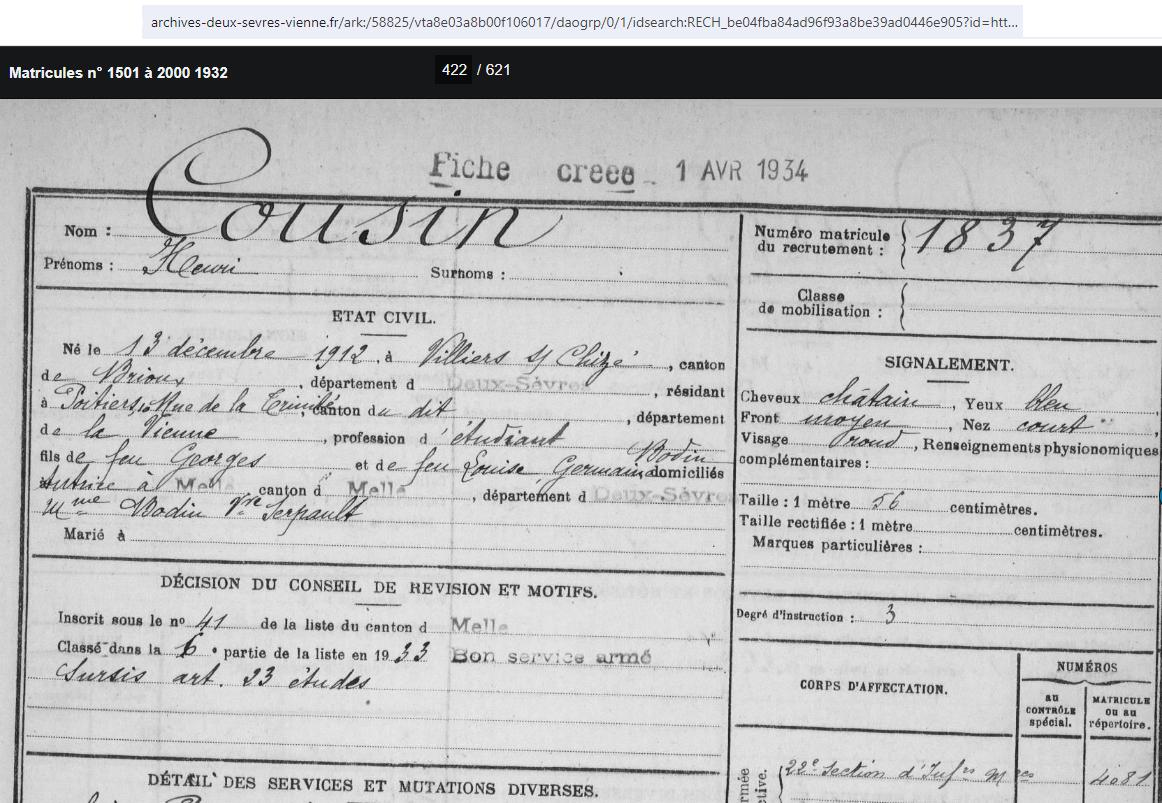 archives-deux-sevres-vienne.fr/ark:/58825/vta8e03a8b00f106017/daogrp/0/1/idsearch:RECH_be04fba84ad96f93a8be39ad0446e905?id=htt...
Matricules n° 1501 à 2000 1932
422 / 621
Fiche creee 1 AVR 1934
Nom : Cousin
Prénoms : Henri Surnoms :
Numéro matricule du recrutement : 1837
Classe de mobilisation :
ETAT CIVIL.
Né le 13 décembre 1912, à Villiers s/ Chizé, canton
de Brioux, département d Deux-Sèvres, résidant
à Poitiers, Rue de la Trinité, canton du dit, département
de la Vienne, profession d'étudiant
fils de feu Georges et de feu Louise Germain Bodin domiciliés
à Melle canton d Melle, département d Deux-Sèvres
Mme Bodin Vve Serpault
Marié à
SIGNALEMENT.
Cheveux châtain, Yeux bleu
Front moyen, Nez court
Visage rond, Renseignements physionomiques
complémentaires :
Taille : 1 mètre 56 centimètres.
Taille rectifiée : 1 mètre centimètres.
Marques particulières :
Degré d'instruction : 3
DÉCISION DU CONSEIL DE REVISION ET MOTIFS.
Inscrit sous le n° 41 de la liste du canton d Melle
Classé dans la 6e partie de la liste en 1933 Bon service armé
Sursis art. 23 études
CORPS D'AFFECTATION.
NUMÉROS
AU CONTRÔLE spécial.
MATRICULE OU AU répertoire.
22e Section d'Infres Mres 4081
DÉTAIL DES SERVICES ET MUTATIONS DIVERSES.